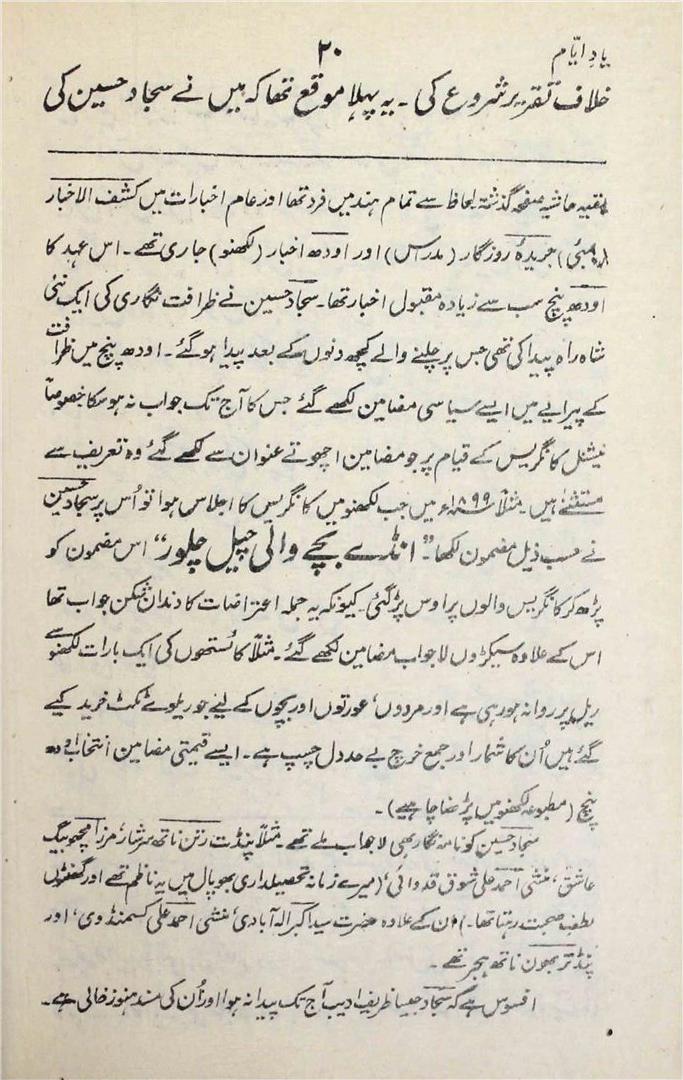 یادِ ایّام
۲۰
خلاف تقریر شروع کی ۔ یہ پہلا موقع تھا کہ میں نے سجاد حسین کی
بقیہ حاشیہ صفحہ گذشتہ لحاظ سے تمام ہند میں فرد تھا اور عام اخبارات میں کشف الاخبار
(بمبئی) جریدۂ روزگار (مدراس) اور اودھ اخبار (لکھنو) جاری تھے ۔ اس عہد کا
اودھ پنچ سب سے زیادہ مقبول اخبار تھا ۔ سجاد حسین نے ظرافت نگاری کی ایک نئی
شاہ راہ پیدا کی تھی جس پر چلنے والے کچھ دنوں کے بعد پیدا ہو گئے ۔ اودھ پنچ میں ظرافت
کے پیرایے میں ایسے سیاسی مضامین لکھے گئے جس کا آج تک جواب نہ ہو سکا خصوصاً
نیشنل کانگریس کے قیام پر جو مضامین اچھوتے عنوان سے لکھے گئے وہ تعریف سے
مستغنے ہیں ۔ مثلاً ۱۸۹۹ء میں جب لکھنو میں کانگریس کا اجلاس ہوا تو اُس پر سجاد حسین
نے حسب ذیل مضمون لکھا ۔ " انڈے بچے والی چیل چلور " اس مضمون کو
پڑھ کر کانگریس والوں پر اوس پڑ گئی ۔ کیونکہ یہ جملہ اعتراضات کا دندان شکن جواب تھا
اس کے علاوہ سیکڑوں لاجواب مضامین لکھے گئے ۔ مثلاً کائستھوں کی ایک بارات لکھنو سے
ریل پر روانہ ہو رہی ہے اور مردوں، عورتوں اور بچوں کے لیے جو ریلوے ٹکٹ خرید کیے
گئے ہیں اُن کا شمار اور جمع خرچ بے حد دل چسپ ہے ۔ ایسے قیمتی مضامین انتخاب اودھ
پنچ (مطبوعہ لکھنو میں پڑھنا چاہیے) ۔
سجاد حسین کو نامہ نگار بھی لاجواب ملے تھے ۔ مثلاً پنڈت رتن ناتھ سرشار، مرزا مچھو بیگ
عاشق، منشی احمد علی شوق قدوائی، (میرے زمانہ تحصیلداری بھوپال میں یہ ناظم تھے اور گھنٹوں
لطف صحبت رہتا تھا ۔) ان کے علاوہ حضرت سید اکبر الہ آبادی، منشی احمد علی کسمنڈوی، اور
پنڈت تربھون ناتھ ہجر تھے ۔
افسوس ہے کہ سجاد جیسا ظریف ادیب آج تک پیدا نہ ہوا اور اُن کی مسند ہنوز خالی ہے ۔